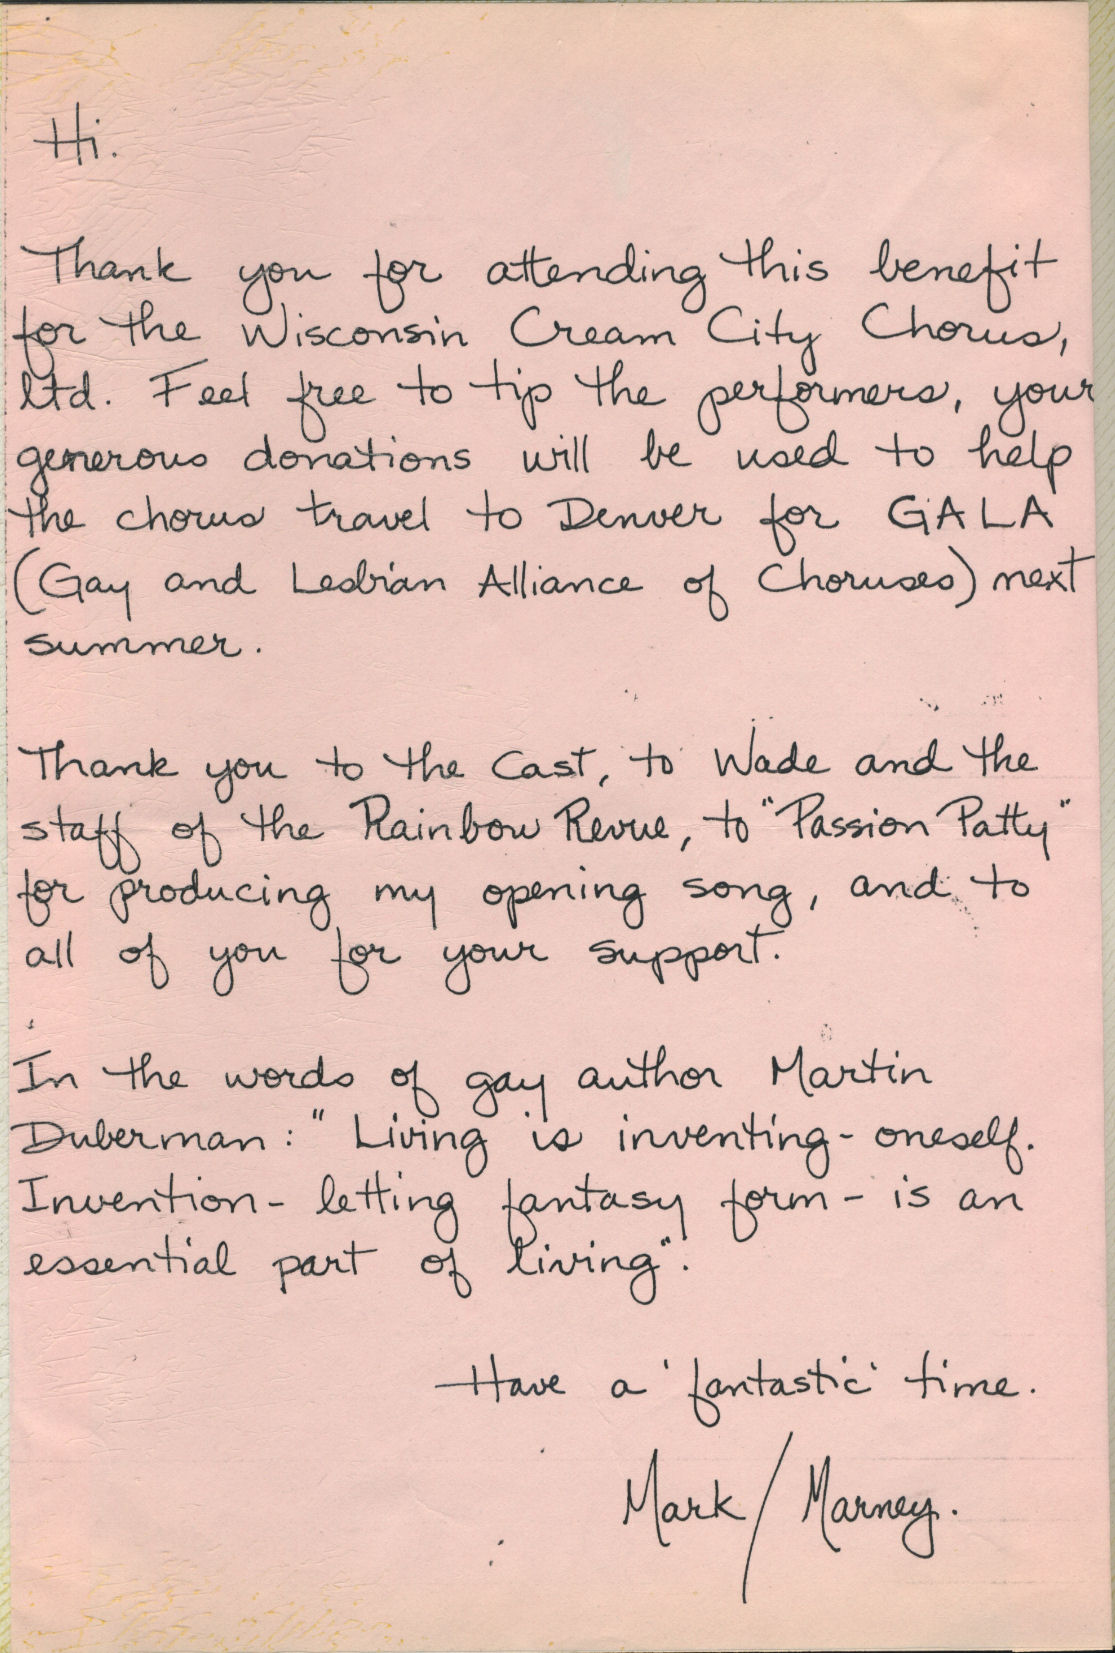 Hi.
Thank you for attending this benefit
for the Wisconsin Cream City Chorus,
ltd. Feel free to tip the performers, your
generous donations will be used to help
the chorus travel to Denver for GALA
(Gay and Lesbian Alliance of Choruses) next
summer.
Thank you to the Cast, to Wade and the
staff of the Rainbow Revue, to "Passion Patty"
for producing my opening song, and to
all of you for your support.
In the words of gay author Martin
Duberman: "Living is inventing- oneself.
Invention- letting fantasy form- is an
essential part of living".
Have a 'fantastic' time.
Mark/Marney.